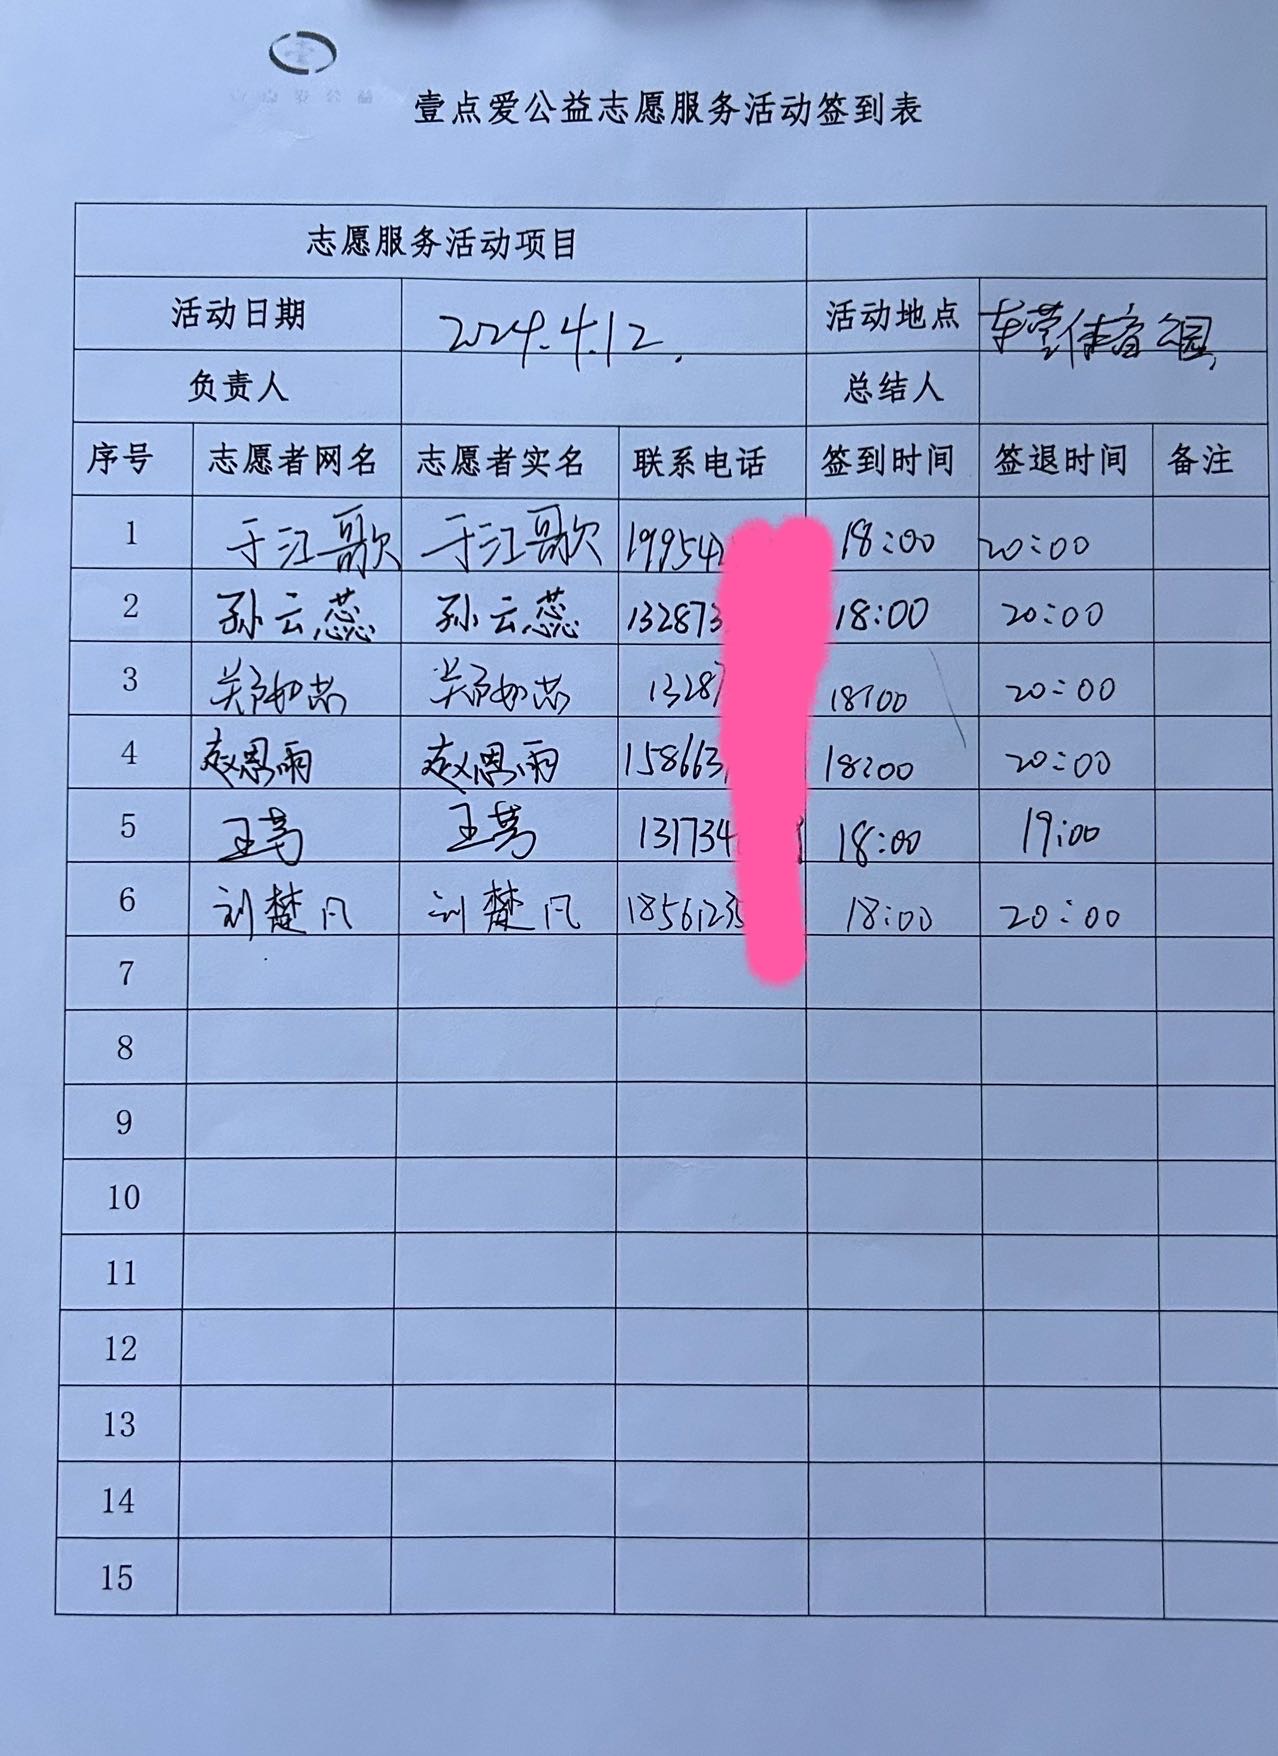 壹点爱公益志愿服务活动签到表
志愿服务活动项目
活动日期 2024.4.12. 活动地点 东营体育公园
负责人 总结人
序号 志愿者网名 志愿者实名 联系电话 签到时间 签退时间 备注
1 于江歌 于江歌 19954 18:00 20:00
2 孙云蕊 孙云蕊 132873 18:00 20:00
3 关郁芯 关郁芯 1328 18:00 20:00
4 赵恩雨 赵恩雨 158663 18:00 20:00
5 王 王 131734 18:00 19:00
6 刘楚凡 刘楚凡 1856123 18:00 20:00
7
8
9
10
11
12
13
14
15